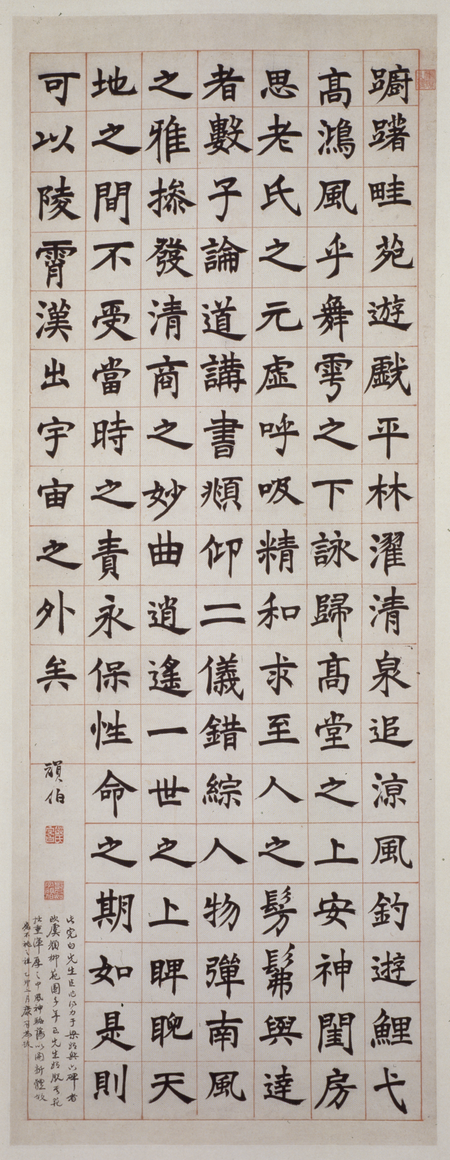 蹰躇畦苑遊戲平林濯清泉追涼風釣遊鯉弋
高鴻風乎舞雩之下詠歸高堂之上安神閨房
思老氏之元虛呼吸精和求至人之髣髴與達
者數子論道講書頫仰二儀錯綜人物彈南風
之雅操發清商之妙曲逍遙一世之上睥睨天
地之間不受當時之責永保性命之期如是則
可以陵霄漢出宇宙之外矣
頑伯
此完白先生